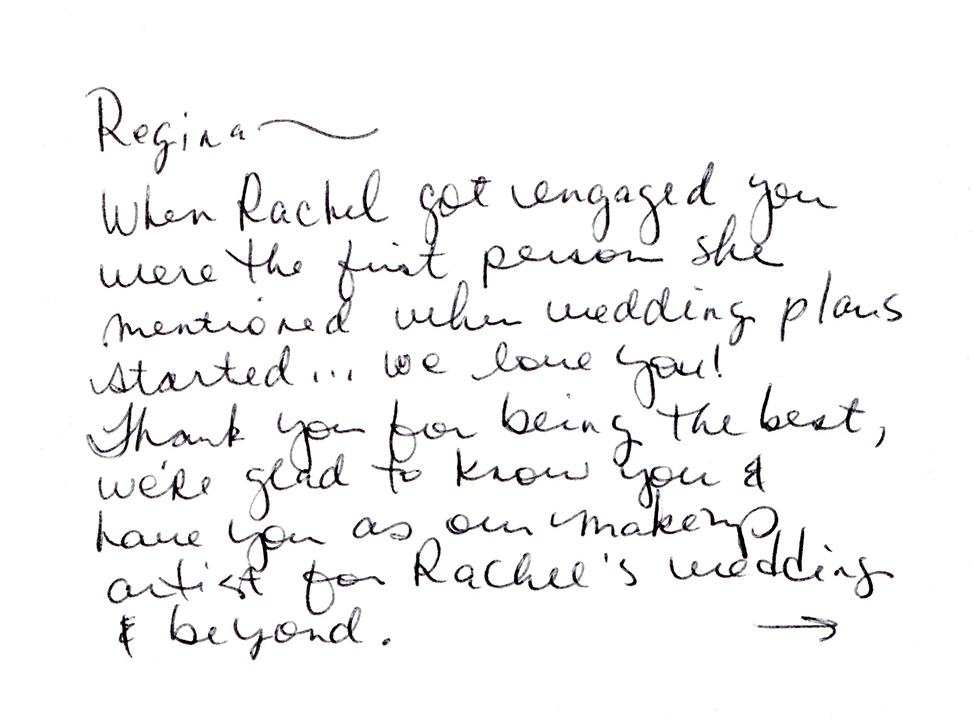 Regina~
When Rachel got engaged you
were the first person she
mentioned when wedding plans
started... we love you!
Thank you for being the best,
we're glad to know you &
have you as our makeup
artist for Rachel's wedding
& beyond. →